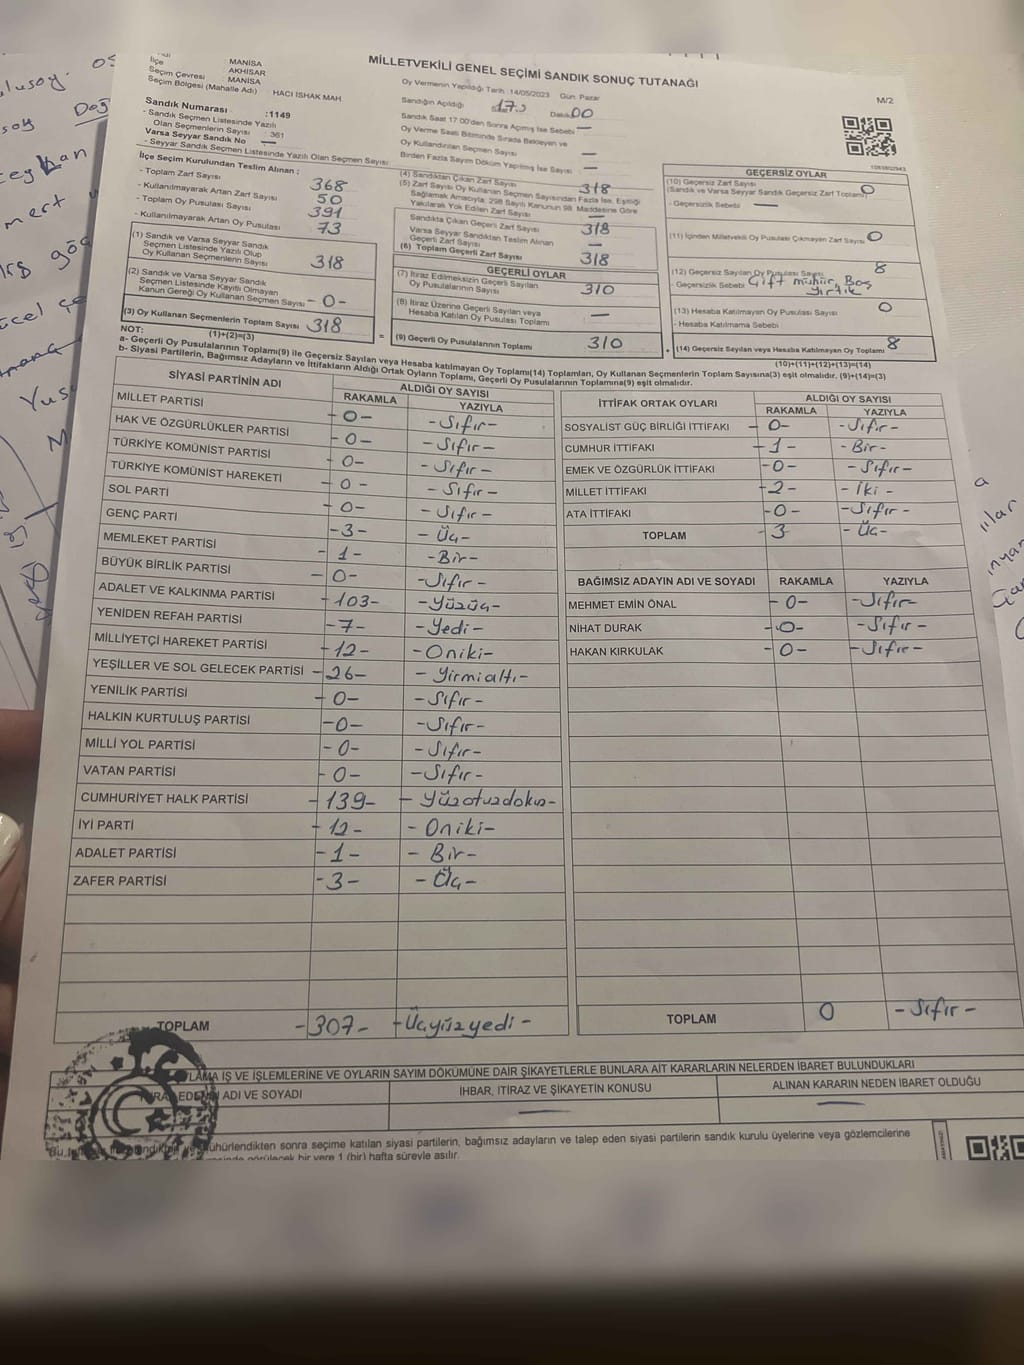 MİLLETVEKİLİ GENEL SEÇİMİ SANDIK SONUÇ TUTANAĞI
M/2
: MANİSA
İlçe : AKHİSAR
Seçim Çevresi : MANİSA
Seçim Bölgesi (Mahalle Adı) : HACI İSHAK MAH
Sandık Numarası :1149
- Sandık Seçmen Listesinde Yazılı
Olan Seçmenlerin Sayısı : 361
Varsa Seyyar Sandık No —
- Seyyar Sandık Seçmen Listesinde Yazılı Olan Seçmen Sayısı
Oy Vermenin Yapıldığı Tarih :14/05/2023 Gün: Pazar
Sandığın Açıldığı Dakika 00
Sandık Saat 17:00'den Sonra Açmış İse Sebebi —
Oy Verme Saati Bitiminde Sırada Bekleyen ve
Oy Kullandırılan Seçmen Sayısı —
Birden Fazla Sayım Döküm Yapılmış İse Sayısı —
İlçe Seçim Kurulundan Teslim Alınan ;
- Toplam Zarf Sayısı 368
- Kullanılmayarak Artan Zarf Sayısı 50
- Toplam Oy Pusulası Sayısı 391
- Kullanılmayarak Artan Oy Pusulası 73
(1) Sandık ve Varsa Seyyar Sandık
Seçmen Listesinde Yazılı Olup
Oy Kullanan Seçmenlerin Sayısı 318
(2) Sandık ve Varsa Seyyar Sandık
Seçmen Listesinde Kayıtlı Olmayan
Kanun Gereği Oy Kullanan Seçmen Sayısı -0-
(3) Oy Kullanan Seçmenlerin Toplam Sayısı 318
(1)+(2)=(3)
(4) Sandıktan Çıkan Zarf Sayısı 318
(5) Zarf Sayısı Oy Kullanan Seçmen Sayısından Fazla İse, Eşitliği
Sağlamak Amacıyla; 298 Sayılı Kanunun 98. Maddesine Göre
Yakılarak Yok Edilen Zarf Sayısı —
Sandıkta Çıkan Geçerli Zarf Sayısı 318
Varsa Seyyar Sandıktan Teslim Alınan
Geçerli Zarf Sayısı —
(6) Toplam Geçerli Zarf Sayısı 318
GEÇERLİ OYLAR
(7) İtiraz Edilmeksizin Geçerli Sayılan
Oy Pusulalarının Sayısı 310
(8) İtiraz Üzerine Geçerli Sayılan veya
Hesaba Katılan Oy Pusulası Toplamı —
= (9) Geçerli Oy Pusulalarının Toplamı 310
GEÇERSİZ OYLAR
(10) Geçersiz Zarf Sayısı
(Sandık ve Varsa Seyyar Sandık Geçersiz Zarf Toplamı) 0
- Geçersizlik Sebebi —
(11) İçinden Milletvekili Oy Pusulası Çıkmayan Zarf Sayısı 0
(12) Geçersiz Sayılan Oy Pusulası Sayısı 8
- Geçersizlik Sebebi Çift mühür, Boş
Yırtık
(13) Hesaba Katılmayan Oy Pusulası Sayısı 0
- Hesaba Katılmama Sebebi
+ (14) Geçersiz Sayılan veya Hesaba Katılmayan Oy Toplamı 8
(10)+(11)+(12)+(13)=(14)
NOT:
a- Geçerli Oy Pusulalarının Toplamı(9) ile Geçersiz Sayılan veya Hesaba katılmayan Oy Toplamı(14) Toplamları, Oy Kullanan Seçmenlerin Toplam Sayısına(3) eşit olmalıdır. (9)+(14)=(3)
b- Siyasi Partilerin, Bağımsız Adayların ve İttifakların Aldığı Oy Ortak Oyların Toplamı, Geçerli Oy Pusulalarının Toplamına(9) eşit olmalıdır.
SİYASİ PARTİNİN ADI ALDIĞI OY SAYISI
RAKAMLA YAZIYLA
MİLLET PARTİSİ -0- -Sıfır-
HAK VE ÖZGÜRLÜKLER PARTİSİ -0- -Sıfır-
TÜRKİYE KOMÜNİST PARTİSİ -0- -Sıfır-
TÜRKİYE KOMÜNİST HAREKETİ -0- -Sıfır-
SOL PARTİ -0- -Sıfır-
GENÇ PARTİ -3- -Üç-
MEMLEKET PARTİSİ -1- -Bir-
BÜYÜK BİRLİK PARTİSİ -0- -Sıfır-
ADALET VE KALKINMA PARTİSİ -103- -Yüzüç-
YENİDEN REFAH PARTİSİ -7- -Yedi-
MİLLİYETÇİ HAREKET PARTİSİ -12- -Oniki-
YEŞİLLER VE SOL GELECEK PARTİSİ -26- -Yirmialtı-
YENİLİK PARTİSİ -0- -Sıfır-
HALKIN KURTULUŞ PARTİSİ -0- -Sıfır-
MİLLİ YOL PARTİSİ -0- -Sıfır-
VATAN PARTİSİ -0- -Sıfır-
CUMHURİYET HALK PARTİSİ -139- -Yüzotuzdokuz-
İYİ PARTİ -12- -Oniki-
ADALET PARTİSİ -1- -Bir-
ZAFER PARTİSİ -3- -Üç-
TOPLAM -307- -Üçyüzyedi-
İTTİFAK ORTAK OYLARI ALDIĞI OY SAYISI
RAKAMLA YAZIYLA
SOSYALİST GÜÇ BİRLİĞİ İTTİFAKI -0- -Sıfır-
CUMHUR İTTİFAKI -1- -Bir-
EMEK VE ÖZGÜRLÜK İTTİFAKI -0- -Sıfır-
MİLLET İTTİFAKI -2- -İki-
ATA İTTİFAKI -0- -Sıfır-
TOPLAM -3- -Üç-
BAĞIMSIZ ADAYIN ADI VE SOYADI RAKAMLA YAZIYLA
MEHMET EMİN ÖNAL -0- -Sıfır-
NİHAT DURAK -0- -Sıfır-
HAKAN KIRKULAK -0- -Sıfır-
TOPLAM 0 -Sıfır-
LAMA İŞ VE İŞLEMLERİNE VE OYLARIN SAYIM DÖKÜMÜNE DAİR ŞİKAYETLERLE BUNLARA AİT KARARLARIN NELERDEN İBARET BULUNDUKLARI
ADI VE SOYADI İHBAR, İTİRAZ VE ŞİKAYETİN KONUSU ALINAN KARARIN NEDEN İBARET OLDUĞU
— —
mühürlendikten sonra seçime katılan siyasi partilerin, bağımsız adayların ve talep eden siyasi partilerin sandık kurulu üyelerine veya gözlemcilerine
görülecek bir yere 1 (bir) hafta süreyle asılır.